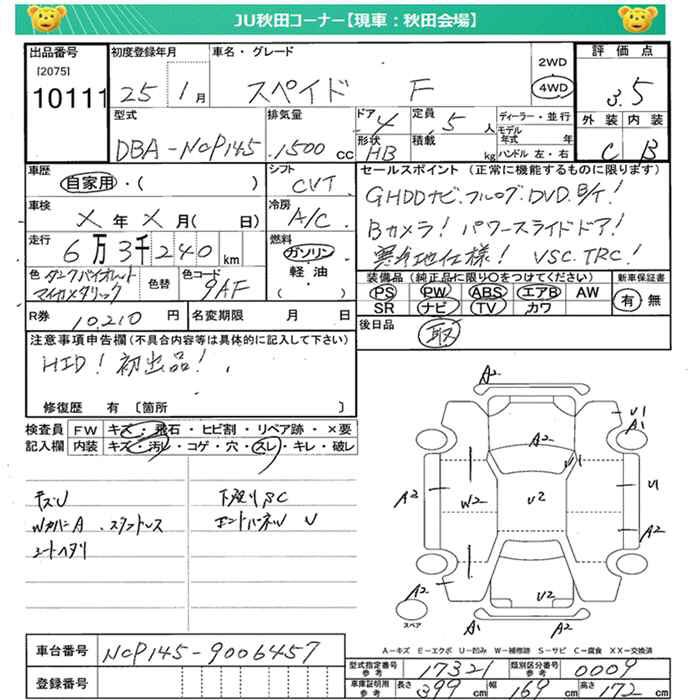 JU秋田コーナー【現車：秋田会場】
出品番号
[2075]
10111
初度登録年月
25 1月
車名・グレード
スペイド F
2WD
4WD
評価点
3.5
外装 内装
C B
型式
DBA-NCP145
排気量
1500 cc
ドア 4
形状 HB
定員 5 人
積載 kg
ディーラー・並行
モデル年式 年
ハンドル 左・右
車歴
自家用・( )
シフト
CVT
セールスポイント (正常に機能するものに限ります)
GHDDナビ.フルセグ.DVD.B/T!
Bカメラ! パワースライドドア!
寒冷地仕様! VSC.TRC!
車検
X年X月( 日)
冷房
A/C
走行
6万3千240km
燃料
ガソリン
軽油
・( )
色 ダークバイオレットマイカメタリック
色替
色コード
9AF
装備品 (純正品に限り○をつけてください)
PS PW ABS エアB AW
SR ナビ TV カワ
新車保証書
有・無
R券 10,210 円
名変期限 月 日
後日品
取
注意事項申告欄 (不具合内容等は具体的に記入して下さい)
HID! 初出品!
修復歴 有 〔箇所 〕
検査員記入欄
FW キズ・飛石・ヒビ割・リペア跡・×要
内装 キズ・汚レ・コゲ・穴・スレ・キレ・破レ
キズU
WカバーA.スタントレス
シートヘタリ
下廻りSC
エンドパネルU
A2
U1
A1
A2
U1
A2
W2
U2
U1
A2
A2
U2
A1
A2
スペア
A-キズ E-エクボ U-凹み W-補修跡 S-サビ C-腐食 XX-交換済
車台番号
NCP145-9006457
登録番号
型式指定番号 参考 17321
類別区分番号 参考 0009
車庫証明用 参考
長さ 399 cm
幅 169 cm
高さ 172 cm